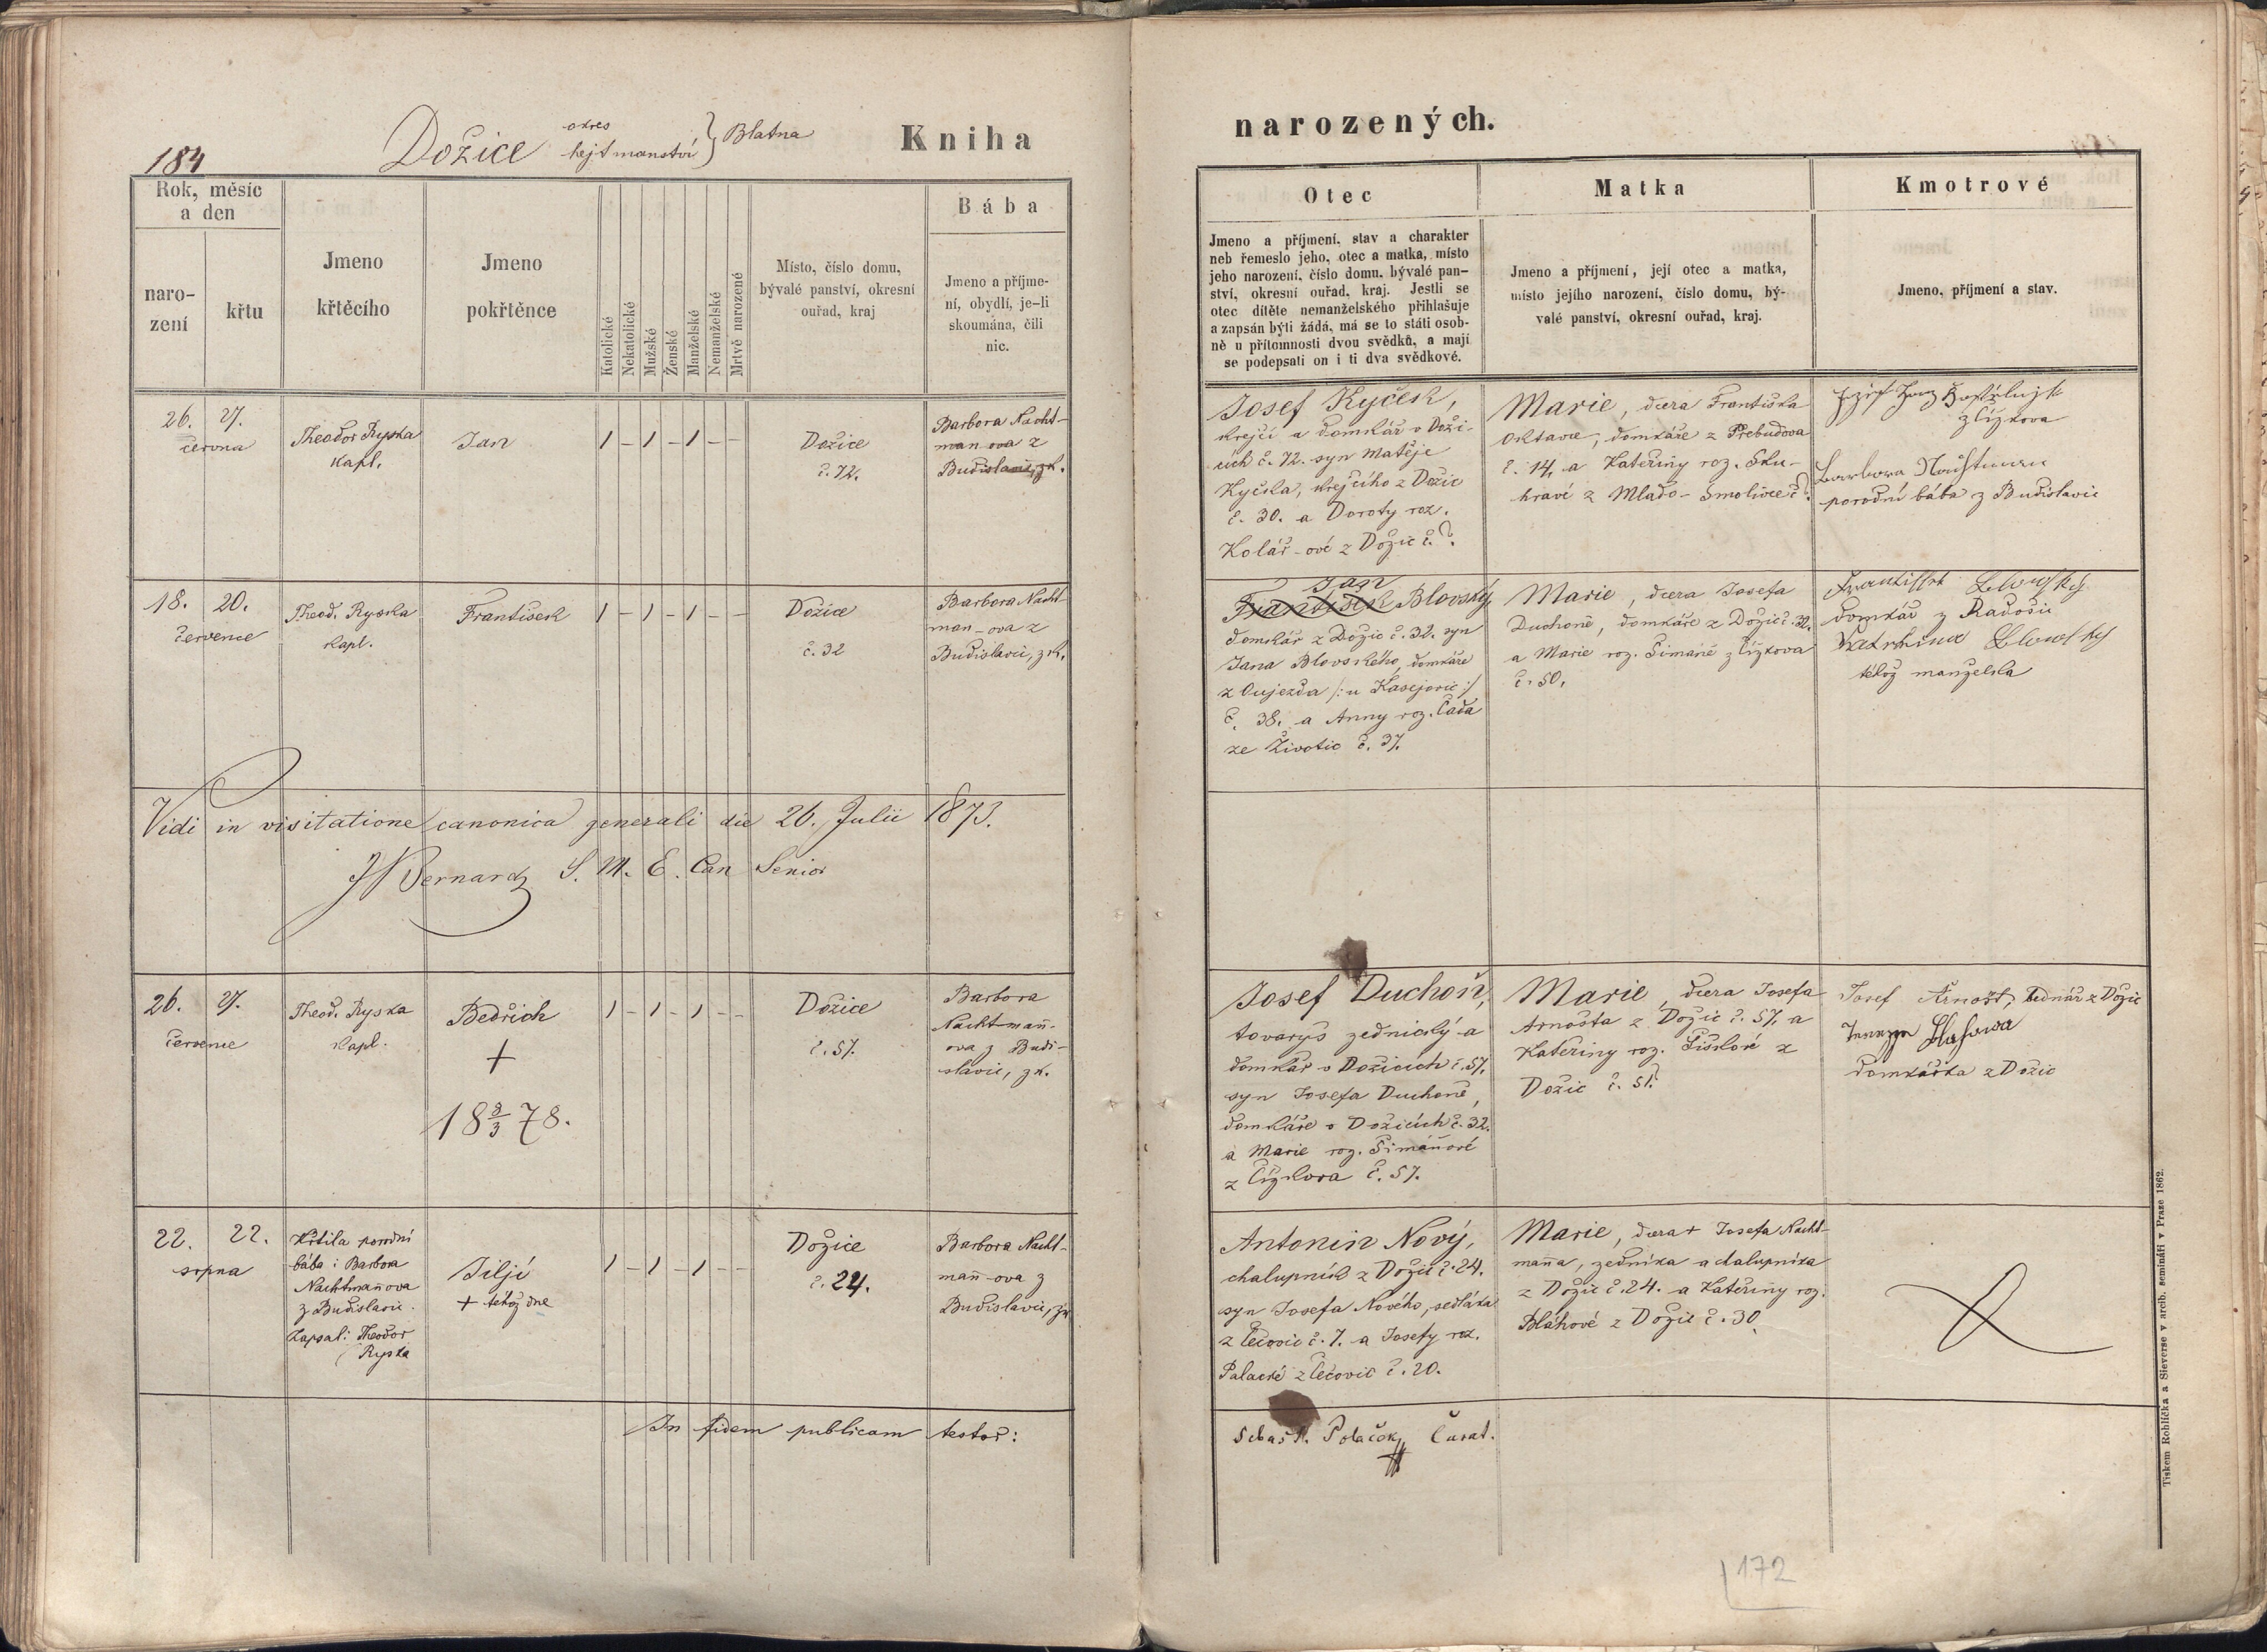 184
Dožice okres hejtmanství } Blatna
Kniha
narozených.
Rok, měsíc
a den
naro-
zení
křtu
Jmeno
křtěcího
Jmeno
pokřtěnce
Katolické
Nekatolické
Mužské
Ženské
Manželské
Nemanželské
Mrtvě narozené
Místo, číslo domu,
bývalé panství, okresní
ouřad, kraj
Bába
Jmeno a příjme-
ní, obydlí, je-li
skoumána, čili
nic.
Otec
Jmeno a příjmení, stav a charakter
neb řemeslo jeho, otec a matka, místo
jeho narození, číslo domu, bývalé pan-
ství, okresní ouřad, kraj. Jestli se
otec dítěte nemanželského přihlašuje
a zapsán býti žádá, má se to státi osob-
ně u přítomnosti dvou svědků, a mají
se podepsati on i ti dva svědkové.
Matka
Jmeno a příjmení, její otec a matka,
místo jejího narození, číslo domu, bý-
valé panství, okresní ouřad, kraj.
Kmotrové
Jmeno, příjmení a stav.
26. 27.
června
Theodor Ryska
kapl.
Jan
1 – 1 – 1 – –
Dožice
č. 72.
Barbora Nacht-
man ova z
Budislavic, zk.
Josef Kyček,
krejčí a domkář v Doži-
cích č. 72. syn Matěje
Kyčka, krejčího z Dožic
č. 30. a Doroty roz.
Kolář-ové z Dožic č. ?.
Marie, dcera Františka
Oktavce, domkáře z Přebudova
č. 14, a Kateřiny roz. Sku-
hravé z Mlado-Smolivce č ?.
z Čížkova
Barbora
porodní bába z Budislavic
18. 20.
července
Theod. Ryska
kapl.
František
1 – 1 – 1 – –
Dožice
č. 32
Barbora Nacht-
man-ova z
Budislavic, zk.
Jan
František Blovský,
domkář z Dožic č. 32. syn
Jana Blovského, domkáře
z Oujezda /: u Kasejovic :/
č. 38. a Anny roz. Čada
ze Životic č. 37.
Marie, dcera Josefa
Duchoně, domkáře z Dožic č. 32.
a Marie roz. Šimáně z Čížkova
č. 50.
domkář z Radošic
téhož manželka
Vidi in visitatione canonica generali die 26. Julii 1873.
J Bernard S. M. E. Can Senior
26. 27.
července
Theod. Ryska
kapl.
Bedřich
+
18 9/3 78.
1 – 1 – 1 – –
Dožice
č. 57.
Barbora
Nachtmañ-
ova z Budi-
slavic, zk.
Josef Duchoň,
tovaryš zednický a
domkář v Dožicích č. 57.
syn Josefa Duchoně,
domkáře v Dožicích č. 32.
a Marie roz. Šimáňové
z Čížkova č. 57.
Marie, dcera Josefa
Arnošta z Dožic č. 57, a
Kateřiny roz. Šiškové z
Dožic č. 51?
Josef Arnošt, bednář z Dožic
domkářka z Dožic
22. 22.
srpna
Křtila porodní
bába: Barbora
Nachtmañova
z Budislavic.
Zapsal: Theodor
Ryska
Jiljí
+ téhož dne
1 – 1 – 1 – –
Dožice
č. 24.
Barbora Nacht-
mañ-ova z
Budislavic, zk
Antonín Nový,
chalupník z Dožic č. 24.
syn Josefa Nového, sedláka
z Čečovic č. 7. a Josefy roz.
Palacké z Čečovic č. 20.
Marie, dcera + Josefa Nacht-
maña, zedníka a chalupníka
z Dožic č. 24. a Kateřiny roz.
Bláhové z Dožic č. 30.
In fidem publicam testor:
Sebast. Polaček Curat.
172
Tiskem Rohlíčka a Sieverse v arcib. semináři v Praze 1862.